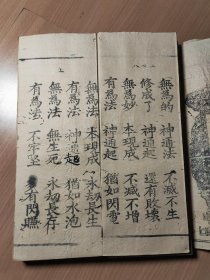 無為的 神通法 不滅不生
修成了 神通起 還有敗壞
無為妙 本現成 不滅不增
有為法 神通起 猶如閃電
無為法 本現成 永劫長生
有為法 神通起 猶如水泡
無為法 無生死 永劫長存
有為法 不牢堅 有閃
上